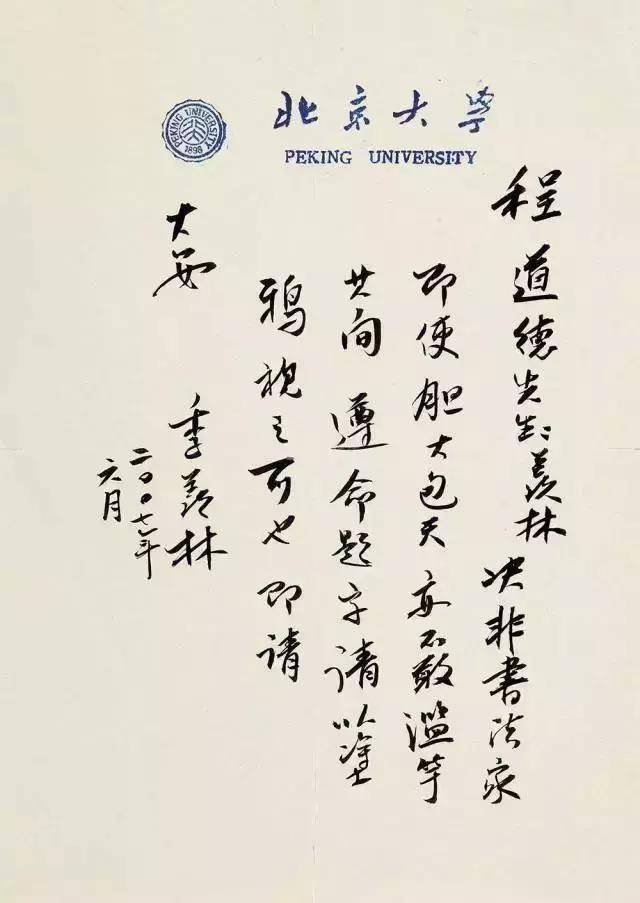 北京大學
PEKING UNIVERSITY
PEKING UNIVERSITY
1898
程道德先生：羡林
决非書法家
即使胆大包天亦不敢濫竽
其间遵命題字请以塗
鴉視之可也即请
大安
季羡林
二〇〇七年
六月